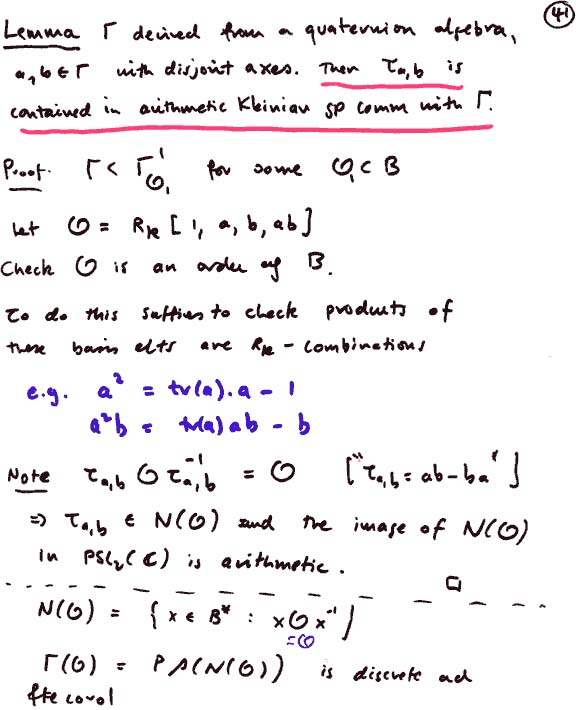 41
Lemma Γ derived from a quaternion algebra,
a, b ∈ Γ with disjoint axes. Then τ_{a,b} is
contained in arithmetic Kleinian gp comm with Γ.
Proof. Γ < Γ^1_{O_1} for some O_1 ⊂ B
Let O = R_k [1, a, b, ab]
Check O is an order of B.
To do this suffices to check products of
these basis elts are R_k - combinations
e.g. a² = tr(a).a - 1
a²b = tr(a) ab - b
Note τ_{a,b} O τ_{a,b}^{-1} = O ["τ_{a,b} = ab - ba"]
⇒ τ_{a,b} ∈ N(O) and the image of N(O)
in PSL_2(C) is arithmetic. □
N(O) = {x ∈ B* : xOx^{-1}}
= O
Γ(O) = Pρ(N(O)) is discrete ad
fte covol